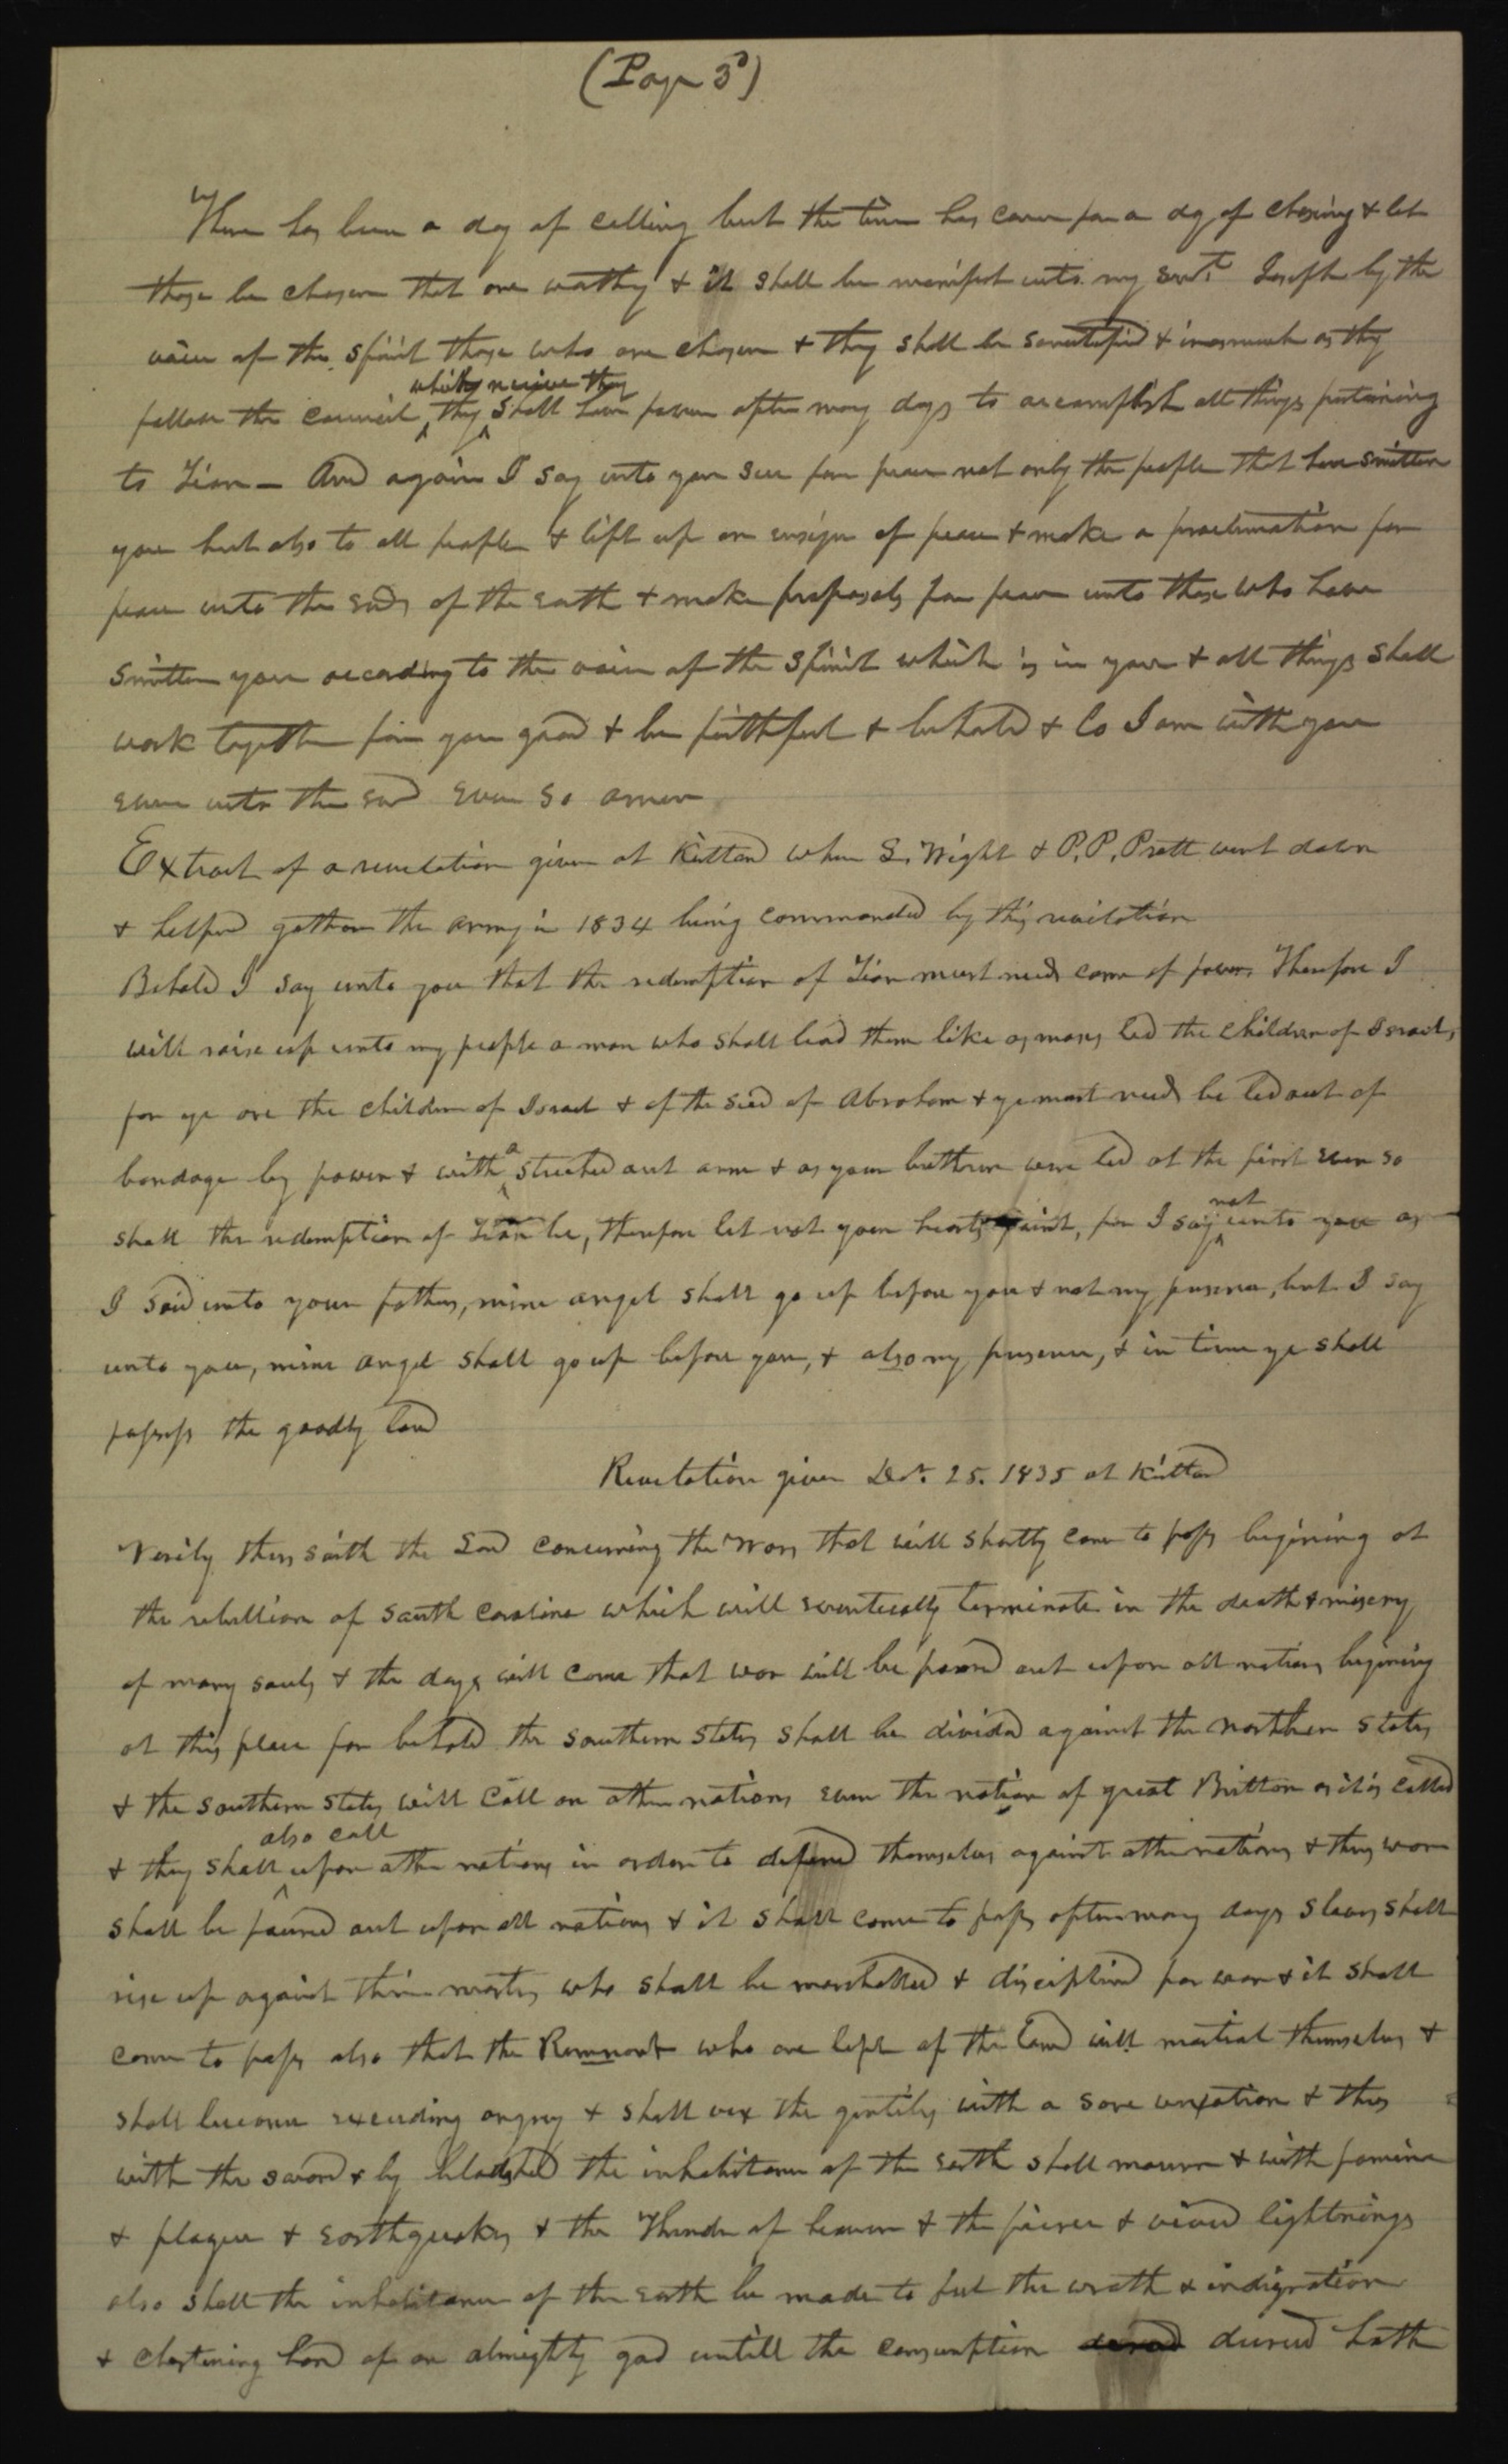 (Page 3)
There has been a day of calling but the time has come for a day of chosing & let
those be chosen that are worthy & it shall be manifest unto my servt. Joseph by the
voice of the spirit those who are chosen & they shall be sanctified & inasmuch as they
which receive they
follow the council they shall have power after many days to accomplish all things pertaining
to Zion — And again I say unto you sue for peace not only the people that have smitten
you but also to all people & lift up an ensign of peace & make a proclimation for
peace unto the ends of the earth & make proposals for peace unto those who have
smitten you according to the voice of the spirit which is in you & all things shall
work together for you good & be faithful & behold & lo I am with you
even unto the end even so amen
Extract of a revelation given at Kirtland when L. Wight & P. P. Pratt went down
& helped gather the army in 1834 being commanded by this revilation
Behold I say unto you that the redemption of Zion must needs come of power, Therefore I
will raise up unto my people a man who shall lead them like as moses led the children of Israel,
for ye are the children of Israel & of the seed of Abraham & ye must needs be led out of
a
bondage by power & with streched out arm & as your brethren were led at the first even so
not
shall the redemption of Zion be, therefore let not your hearts faint, for I say unto you as
I said unto your fathers, mine angel shall go up before you & not my presence, but I say
unto you, mine angel shall go up before you, & also my presence, & in time ye shall
possess the goodly land
Revelation given Dec. 25. 1835 at Kirtland
Verily thus saith the Lord concerning the wars that will shortly come to pass begining at
the rebellion of South Carolina which will eventually terminate in the death & misery
of many souls & the days will come that war will be poured out upon all nations begining
at this place for behold the southern states shall be divided against the northern states
& the southern states will call on other nations even the nation of great Brittan as it is called
also call
& they shall upon other nations in order to defend themselves against other nations & thus war
shall be poured out upon all nations & it shall come to pass after many days slaves shall
rise up against thier masters who shall be marshalled & disciplined for war & it shall
come to pass also that the Remnant who are left of the land will martial themselves &
shall become exceeding angry & shall vex the gentiles with a sore vexation & thus
with the sword & by bloodshed the inhabitance of the earth shall mourn & with famine
& plague & earthquakes & the Thunder of heaven & the fierce & vivid lightnings
also shall the inhabitance of the earth be made to feel the wrath & indignation
& chastening hand of an almighty god untill the consumption decreed hath